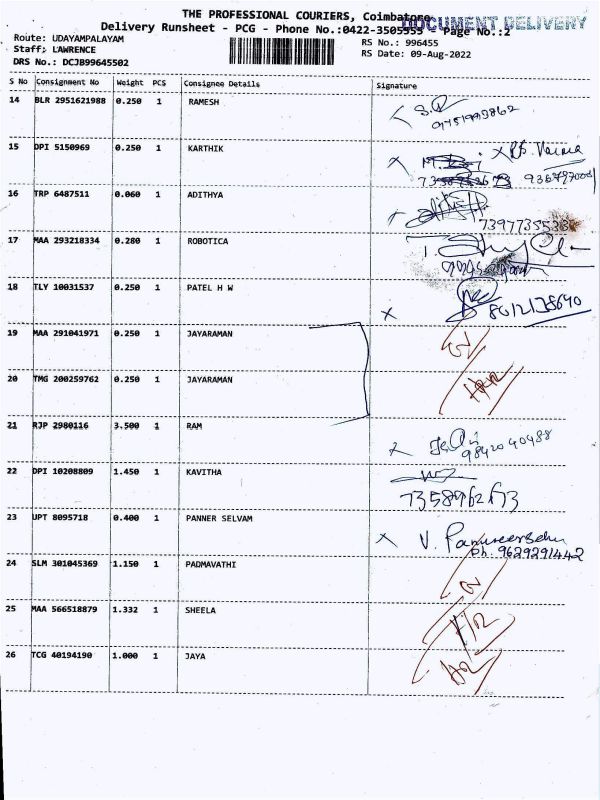 THE PROFESSIONAL COURIERS, Coimbatore
DOCUMENT DELIVERY
Delivery Runsheet - PCG - Phone No.:0422-3505555 Page No.:2
Route: UDAYAMPALAYAM RS No.: 996455
Staff; LAWRENCE RS Date: 09-Aug-2022
DRS No.: DCJB99645502
S No Consignment No Weight PCS Consignee Details Signature
14 BLR 2951621988 0.250 1 RAMESH
15 DPI 5150969 0.250 1 KARTHIK
16 TRP 6487511 0.060 1 ADITHYA
17 MAA 293218334 0.280 1 ROBOTICA
18 TLY 10031537 0.250 1 PATEL H W
19 MAA 291041971 0.250 1 JAYARAMAN
20 TMG 200259762 0.250 1 JAYARAMAN
21 RJP 2980116 3.500 1 RAM
9842040488
22 DPI 10208809 1.450 1 KAVITHA
23 UPT 8095718 0.400 1 PANNER SELVAM
V. Panneerselvam
Ph. 9629291442
24 SLM 301045369 1.150 1 PADMAVATHI
25 MAA 566518879 1.332 1 SHEELA
26 TCG 40194190 1.000 1 JAYA